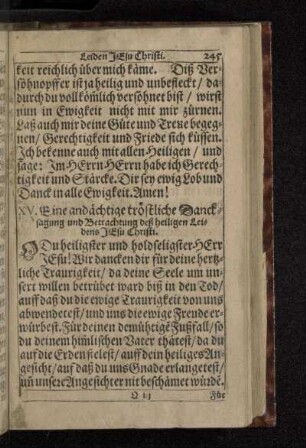 Leiden JEsu Christi. 245
keit reichlich über mich käme. Diß Ver-
söhnopffer ist ja heilig und unbefleckt / da-
durch du vollkom̃lich versöhnet bist / wirst
nun in Ewigkeit nicht mit mir zürnen.
Laß auch mir deine Güte und Treue begeg-
nen / Gerechtigkeit und Friede sich küssen.
Ich bekenne auch mit allen Heiligen / und
sage: Im HErrn HErrn habe ich Gerech-
tigkeit und Stärcke. Dir sey ewig Lob und
Danck in alle Ewigkeit. Amen!
XV. Eine andächtige tröstliche Danck-
sagung und Betrachtung deß heiligen Lei-
dens JEsu Christi.
O Du heiligster und holdseligster HErr
JEsu! Wir dancken dir für deine hertz-
liche Traurigkeit / da deine Seele um un-
sert willen betrübet ward biß in den Tod /
auff daß du die ewige Traurigkeit von uns
abwendetest / und uns die ewige Freude er-
würbest. Für deinen demühtigē Fußfall / so
du deinem him̃lischen Vater thätest / da du
auf die Erden fielest / auff dein heiliges An-
gesicht / auf daß du uns Gnade erlangetest /
uñ unsere Angesichter nit beschämet würdē.
Q iij Für